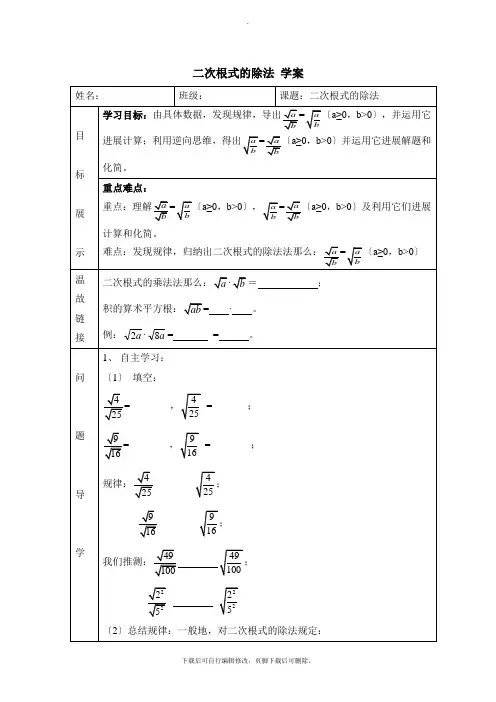 .
二次根式的除法 学案
姓名： 班级： 课题：二次根式的除法
目标展示
学习目标：由具体数据，发现规律，导出√a/√b=√(a/b)〔a≥0，b>0〕，并运用它
进展计算；利用逆向思维，得出√(a/b)=√a/√b〔a≥0，b>0〕并运用它进展解题和
化简。
重点难点：
重点：理解√a/√b=√(a/b)〔a≥0，b>0〕，√(a/b)=√a/√b〔a≥0，b>0〕及利用它们进展
计算和化简。
难点：发现规律，归纳出二次根式的除法法那么：√a/√b=√(a/b)〔a≥0，b>0〕
温故链接
二次根式的乘法法那么：√a·√b＝ ；
积的算术平方根：√ab= · 。
例：√2a·√8a= = 。
问题导学
1、自主学习：
〔1〕 填空：
√4/√25=________，√(4/25)=________；
√9/√16=________，√(9/16)=________；
规律：√4/√25 √(4/25)；
√9/√16 √(9/16)；
我们推测：√49/√100 √(49/100)；
√2²/√5² √(2²/5²)
〔2〕总结规律：一般地，对二次根式的除法规定：
下载后可自行编辑修改，页脚下载后可删除。